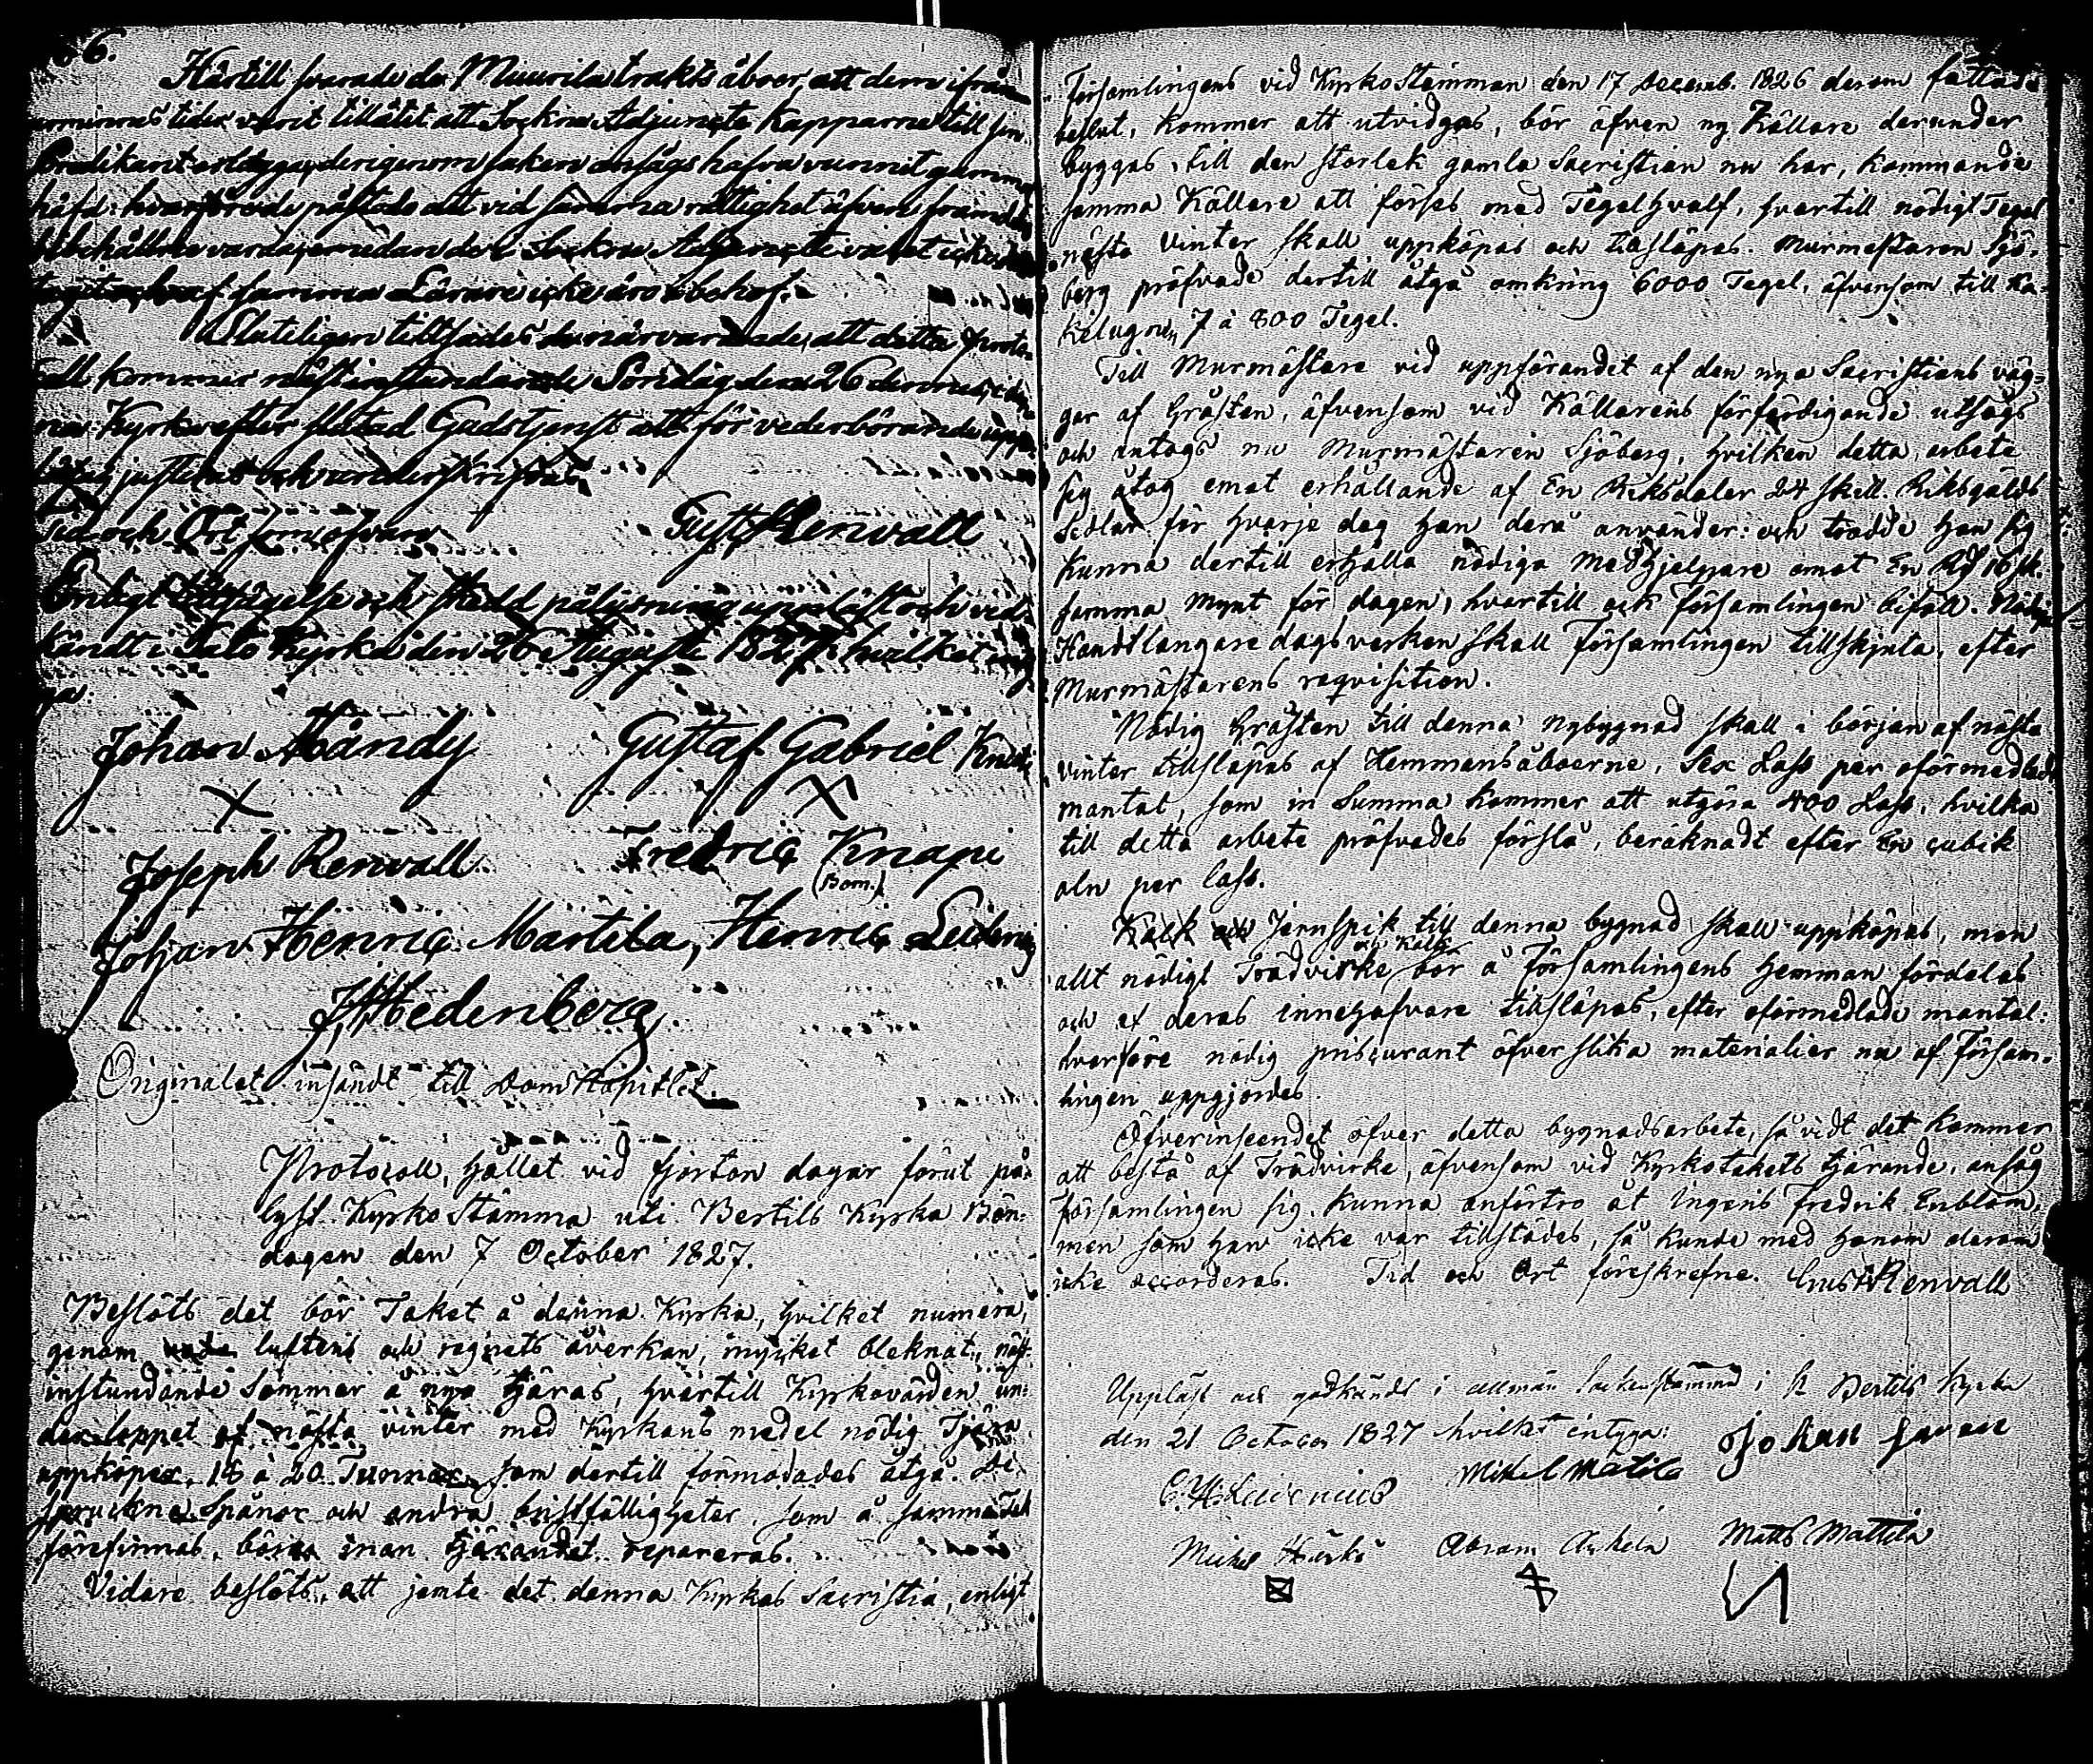 66.
Härtill svarade de Muurila trakts åboer, att dem ifrån
minnes tider varit tillåtet att Sockne Adjuncts Kapparne till sin
Predikant erlägga, derigenom saken ansågs hafva vunnit gammal
häfd: hvarföre de påstodo att vid samma rättighet äfven framdeles
bibehållne varda, emedan de Sockne Adjuncts
af samma Lärare icke äro i behof.
Sluteligen tillsades de närvarande, att detta Proto-
coll kommer nästinstundande Söndag den 26 dennes, i den-
na Kyrka efter slutad Gudstjenst att för vederbörande upp-
läsas, justeras och underskrifvas.
Tid och Ort som ofvan
Gust Renwall
Enligt tillsägelse och skedd pålysning uppläst och ved-
kändt i Kyrka den 26 Augusti 1827; hvilket
Johan Mändy Gustaf Gabriel
Joseph Renvall. Fredric Knape
(Bom.)
Johan Henric Märtela, Henric
J. Hedenberg.
Originalet insändt till DomKapitlet.
Protocoll, hållet vid fjorton dagar förut på-
lyst KyrkoStämma uti Bertils Kyrka Bön-
dagen den 7 October 1827.
Beslöts det bör Taket å denna Kyrka, hvilket numera,
genom luftens och regnets åverkan, mycket bleknat, näst-
instundande Sommar å nyo tjäras, hvartill Kyrkovärden un-
der loppet af nästa vinter med Kyrkans medel nödig Tjära
uppköper, 18 à 20 Tunnor, som dertill förmodades åtgå. De
spruckne Spånor och andra bristfälligheter, som å samma Tak
förefinnas, böra innan tjärandet repareras.
Vidare beslöts, att jemte det denna Kyrkas Sacristia, enligt
Församlingens vid KyrkoStämman den 17 Decemb. 1826 derom fattade
beslut, kommer att utvidgas, bör äfven ny Källare derunder
byggas, till den storlek gamla Sacristian nu har, kommande
samma Källare att förses med Tegelhvalf, hvartill nödigt Tegel
nästa Vinter skall uppköpas och tillsläpas. Murmästaren Sjö-
berg pröfvade dertill åtgå omkring 6000 Tegel, äfvensom till Ka-
kelugnen 7 à 800 Tegel.
Till Murmästare vid uppförandet af den nya Sacristians väg-
gar af Gråsten, äfvensom vid Källarens förfärdigande utsågs
och antogs nu Murmästaren Sjöberg, hvilken detta arbete
sig åtog emot erhållande af En Riksdaler 24 skill. Riksgälds
Sedlar för hvarje dag han derå använder: och trodde han sig
kunna dertill erhålla nödiga Medhjelpare emot En Rd 16 sk.
samma mynt för dagen, hvartill ock församlingen biföll. Nödige
Handtlangare dagsverken skall Församlingen tillskjuta, efter
Murmästarens reqvisition.
Nödig Gråsten till denna nybygnad skall i början af nästa
vinter tillsläpas af Hemmansåboerne, Sex Lass per oförmedladt
mantal, som in Summa kommer att utgöra 400 Lass, hvilka
till detta arbete pröfvades förslå, beräknadt efter En cubik
aln per lass.
Kalk och Jernspik till denna bygnad skall uppköpas, men
allt nödigt Trädvirke och Kalk bör å Församlingens hemman fördelas
och af deras innehafvare tillsläpas, efter oförmedlade mantal:
hvarföre nödig priscurant öfver slika materialier nu af Försam-
lingen uppgjordes.
Öfverinseendet öfver detta bygnadsarbete, så vidt det kommer
att bestå af Trädvirke, äfvensom vid Kyrkotakets tjärande, ansåg
församlingen sig kunna anförtro åt Ingenis Fredrik Enblom,
men som han icke var tillstädes, så kunde med honom derom
icke accorderas. Tid och Ort föreskrefne. Gust Renvall
Uppläst och godkändt i allmän Sockenstämma i St Bertils Kyrka
den 21 October 1827 hvilket intyga:
Johan
Mikel Matila
Michel Abram Matts Mattila